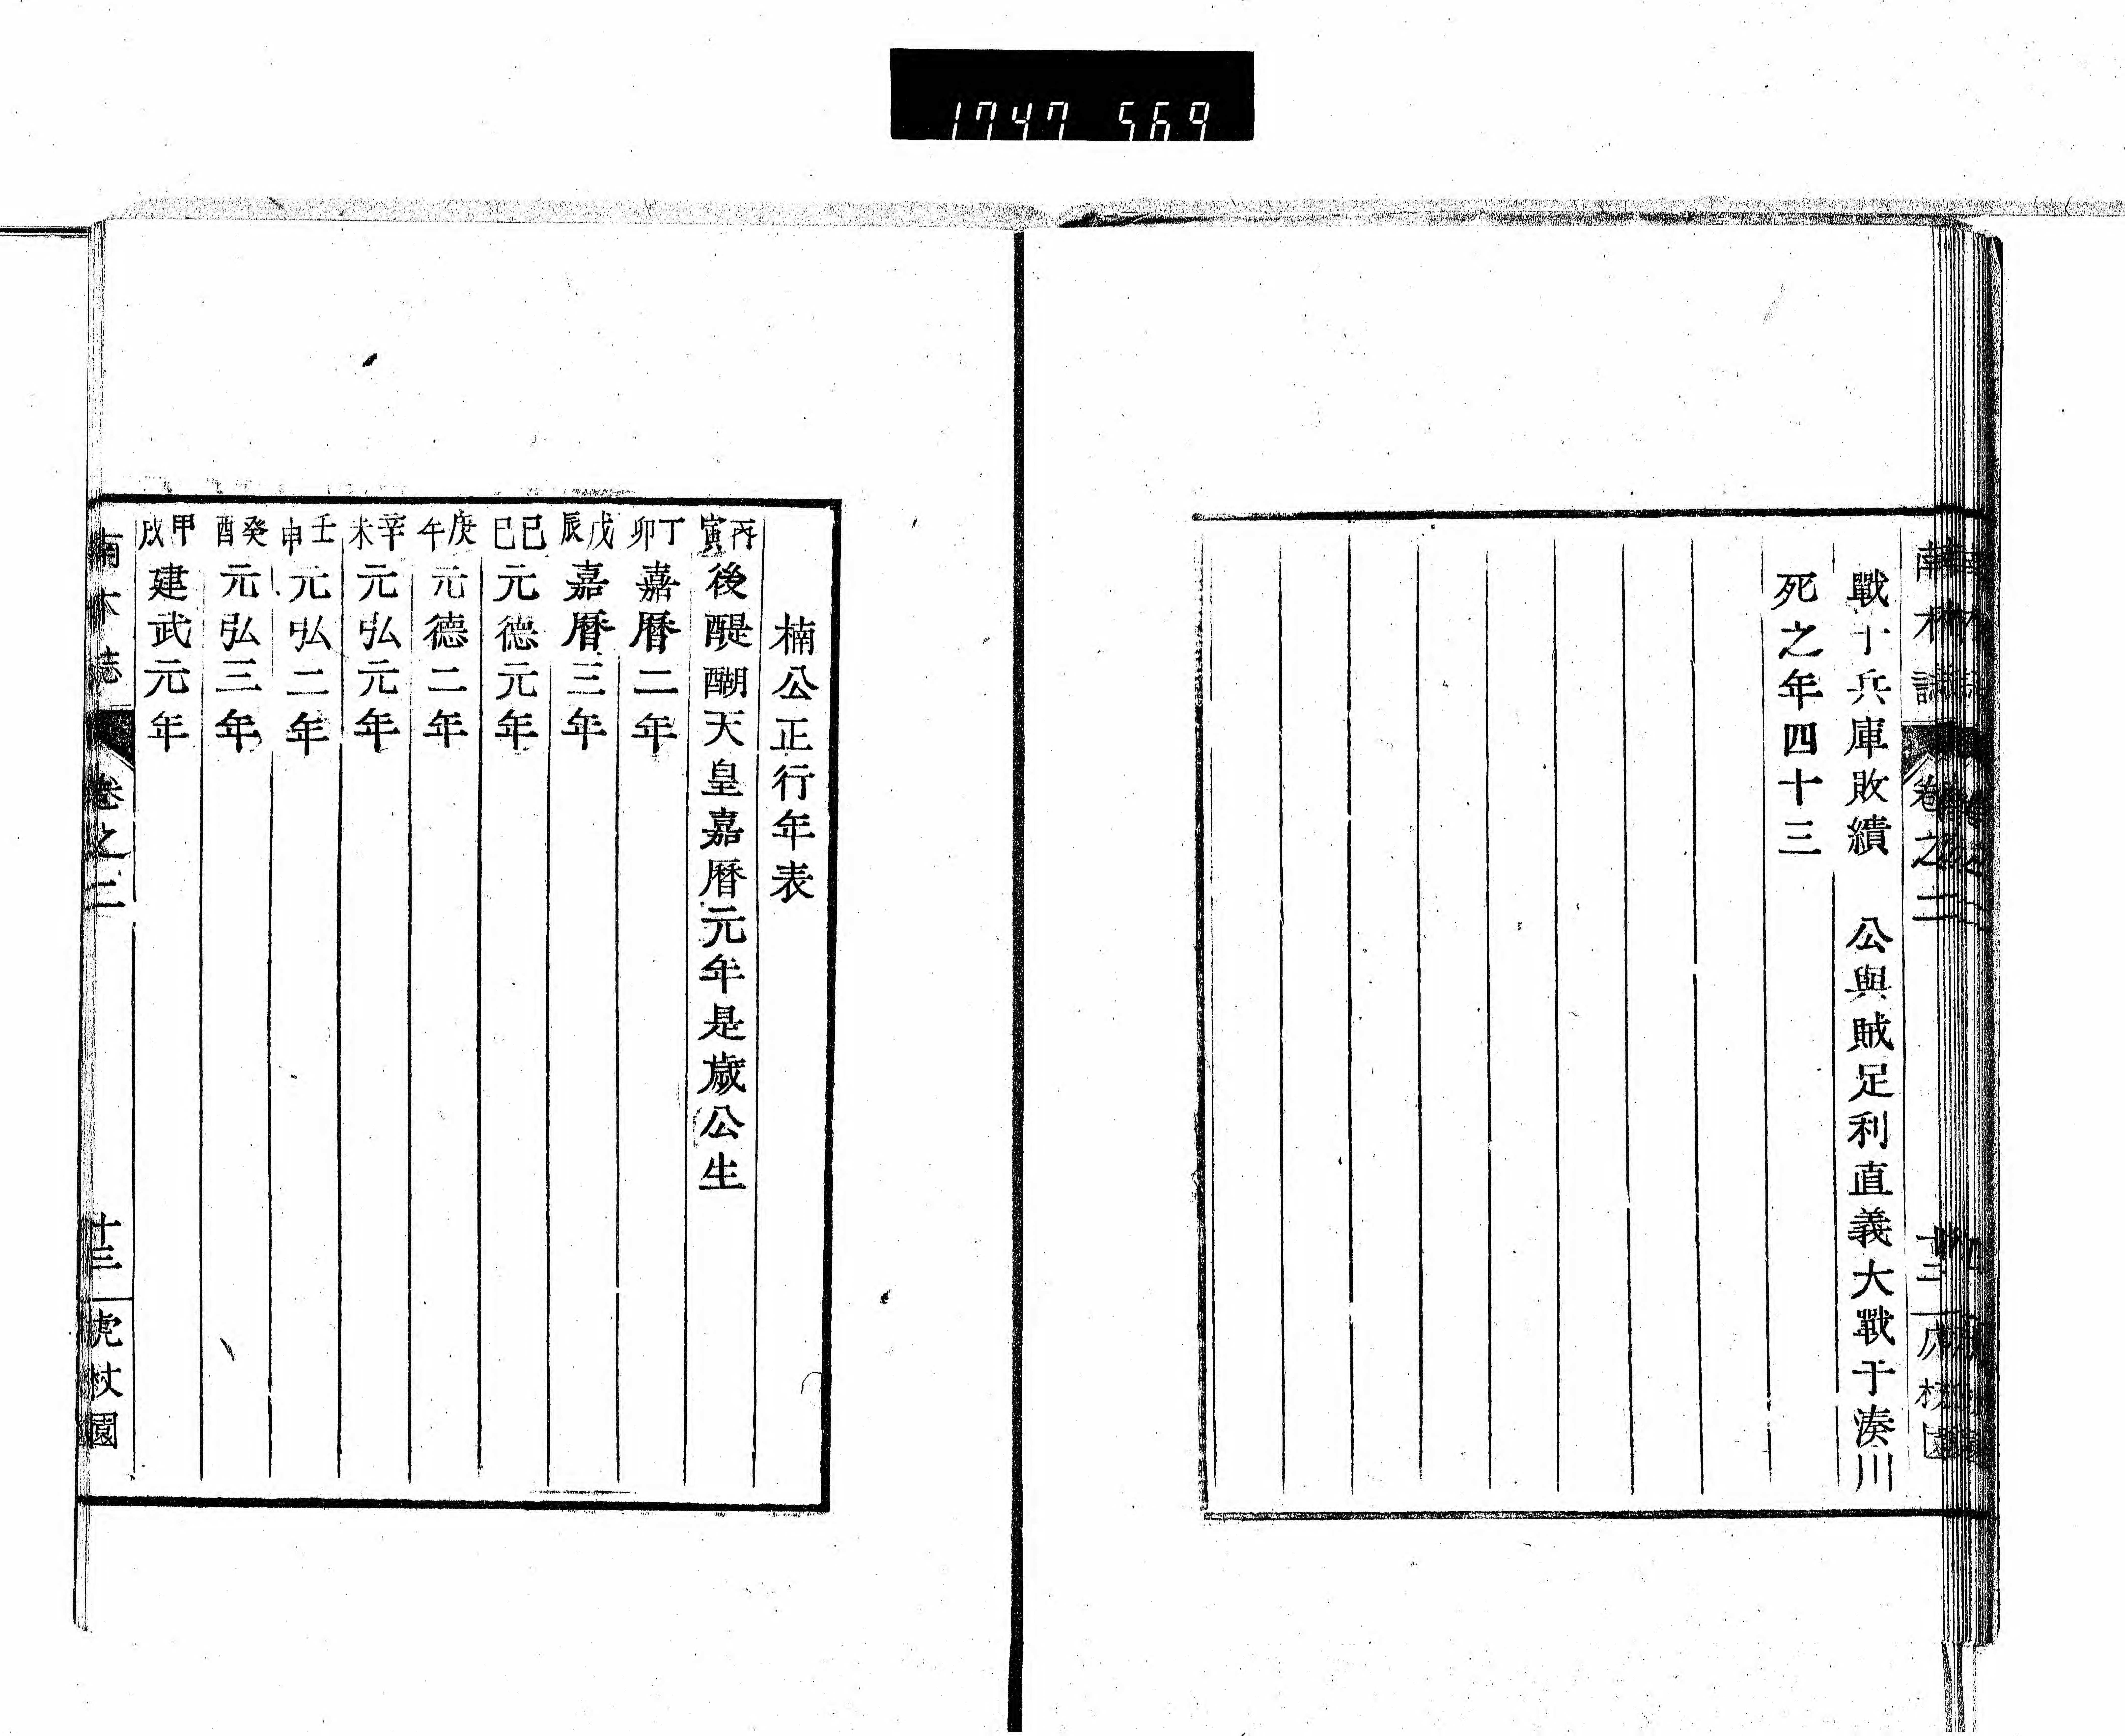 1747 569
戰于兵庫敗績　公與賊足利直義大戰于湊川
死之年四十三
楠公正行年表
丙寅後醍醐天皇嘉曆元年是歲公生
丁卯嘉曆二年
戊辰嘉曆三年
己巳元德元年
庚午元德二年
辛未元弘元年
壬申元弘二年
癸酉元弘三年
甲戌建武元年
南木誌　卷之二　十三　虎杖園